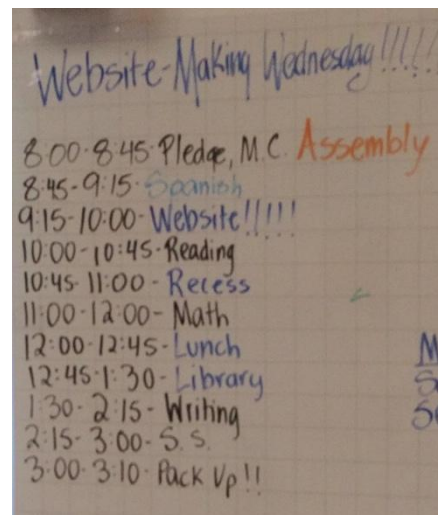 Website-Making Wednesday!!!!!
8:00-8:45-Pledge, M.C. Assembly
8:45-9:15-Spanish
9:15-10:00-Website!!!!!
10:00-10:45-Reading
10:45-11:00-Recess
11:00-12:00-Math
12:00-12:45-Lunch
12:45-1:30-Library
1:30-2:15-Writing
2:15-3:00-S.S.
3:00-3:10-Pack Up!!